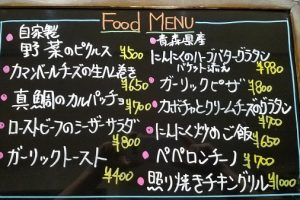 Food MENU
・自家製
野菜のピクルス ¥500
・カマンベールチーズの生ハム巻き
¥650
・真鯛のカルパッチョ
¥700
・ローストビーフのシーザーサラダ
¥800
・ガーリックトースト
¥400
・青森県産
にんにくのハーブバターグラタン
バケット添え ¥980
・ガーリックピザ
¥800
・カボチャとクリームチーズのグラタン
¥700
・にんにく炒めご飯
¥650
・ペペロンチーノ
¥700
・照り焼きチキングリル ¥1000